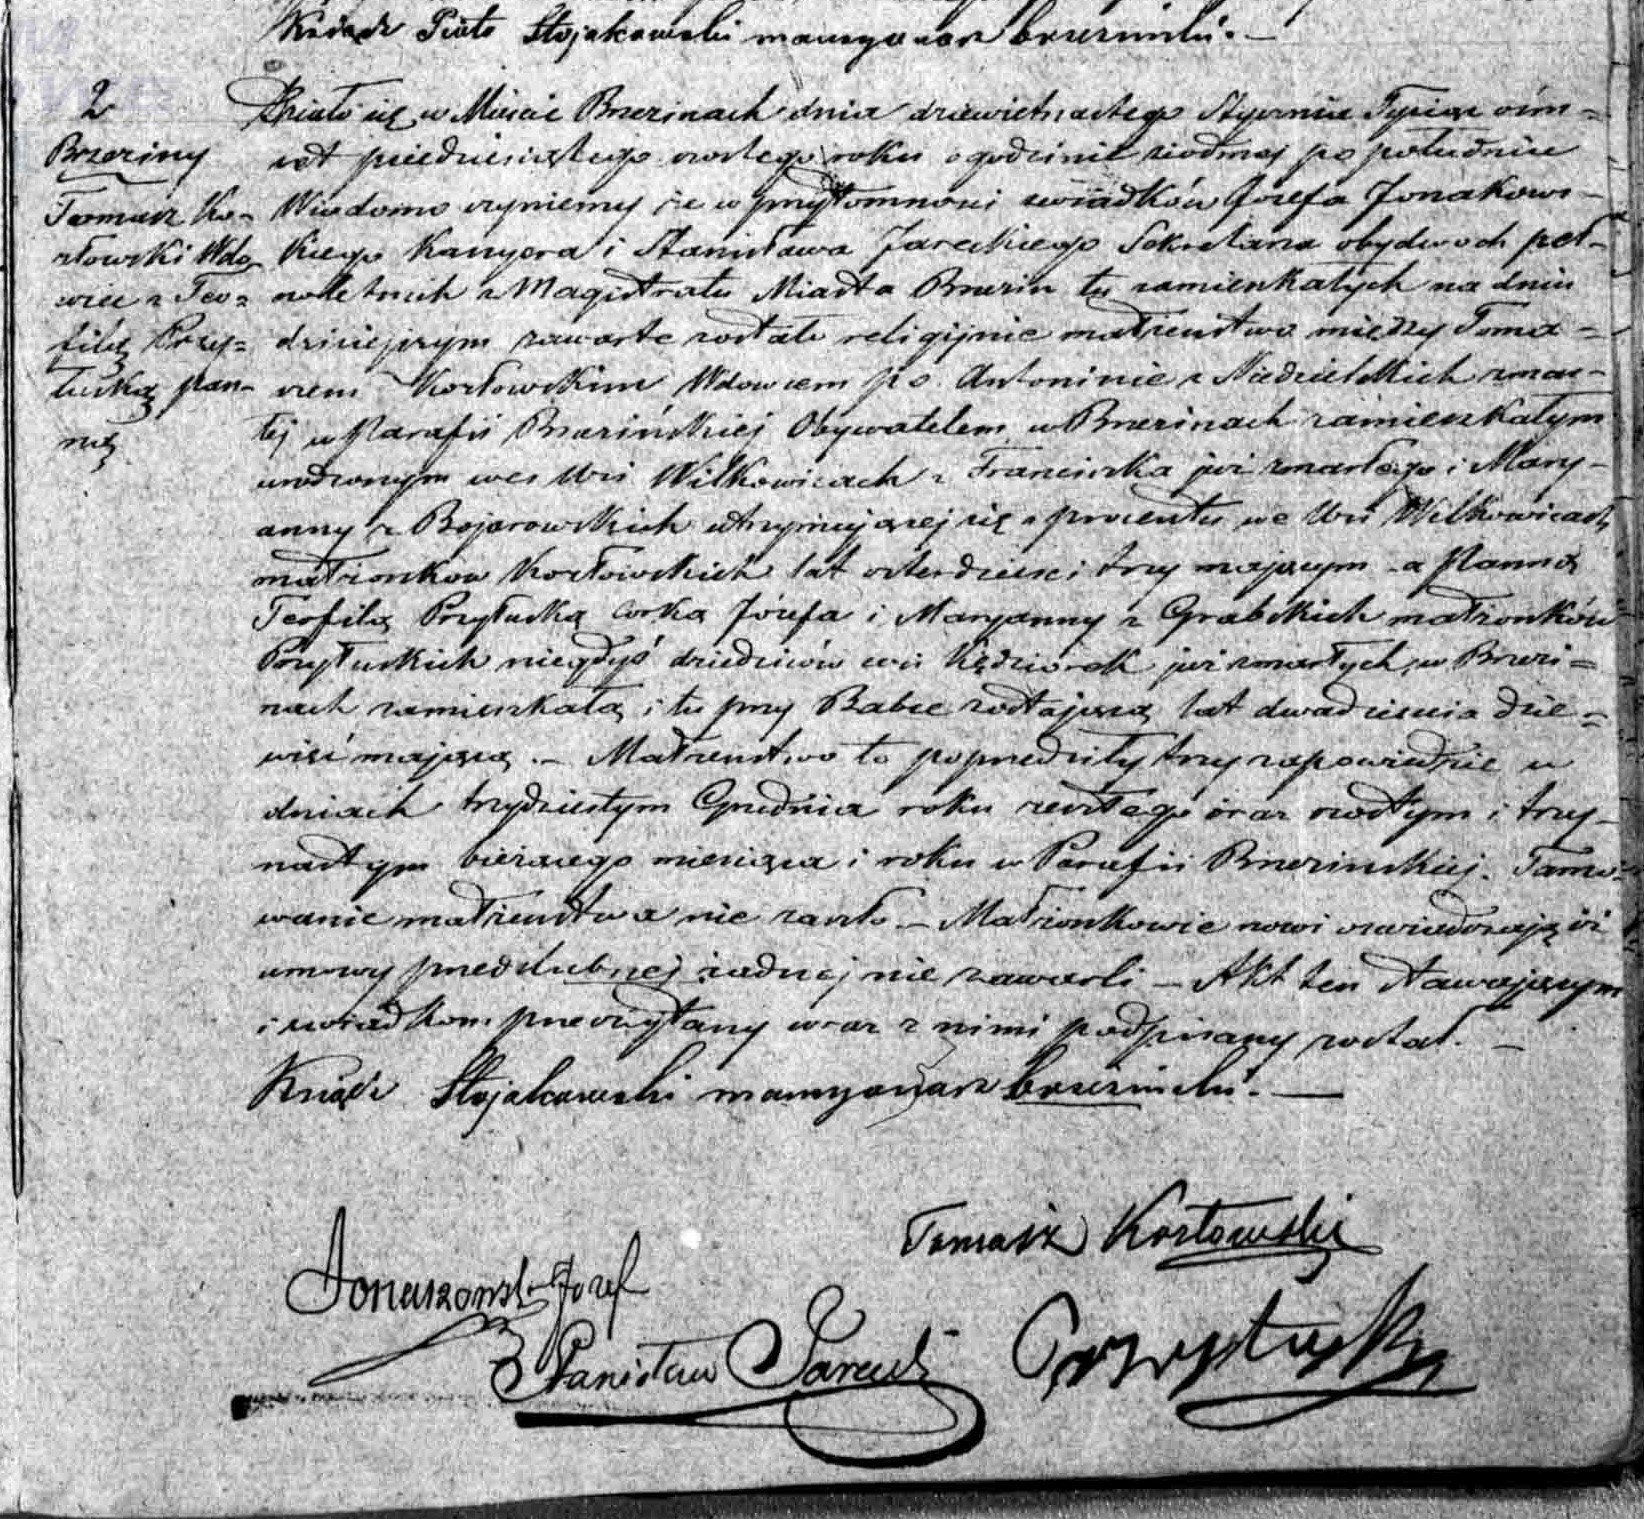 Ksiądz Piotr Stojakowski mansyonarz brzeziński. —
2
Brzeziny
Tomasz Ko-
złowski Wdo-
wiec z Teo-
filą Przy-
łuską pan-
ną
Działo się w Mieście Brzezinach dnia dziewiętnastego Stycznia Tysiąc óśm-
set piedziesiątego szostego roku o godzinie siodmej po południu
Wiadomo czyniemy że w przytomnosci swiadków Józefa Jonakows-
kiego Kassyera i Stanisława Jareckiego Sekretarza obydwoch peł-
noletnich z Magistratu Miasta Brzezin tu zamieszkałych na dniu
dzisiejszym zawarte zostało religijnie małżeństwo między Toma-
szem Kozłowskim Wdowcem po Antoninie z Niedzielskich zmar-
łej w Parafii Brzezińskiej Obywatelem w Brzezinach zamieszkałym
urodzonym we Wsi Wilkowicach z Franciszka już zmarłego i Mary-
anny z Bojarowskich utrzymującej się z procentu we Wsi Wilkowicach
małżonkow Kozłowskich lat czterdzieści trzy mającym – a Panną
Teofilą Przyłuską corką Józefa i Maryanny z Grabskich małżonków
Przyłuskich niegdyś dziedziców wsi Kędziorek już zmarłych, w Brzezi-
nach zamieszkałą i tu przy Babce zostającą lat dwadziescia dzie-
więć mającą. – Małżenstwo to poprzedziły trzy zapowiedzie w
dniach trzydziestym Grudnia roku zeszłego oraz szostym i trzy-
nastym bieżącego miesiąca i roku w Parafii Brzezinskiej. Tamo-
wanie małżenstwa nie zaszło. – Małżonkowie nowi oswiadczają iż
umowy przedslubnej żadnej nie zawarli – Akt ten stawającym
i swiadkom przeczytany wraz z nimi podpisany został. –
Ksiądz Stojakowski mansyonarz brzeziński. —
Tomasz Kozłowski
Józef
Stanisław Jarecki